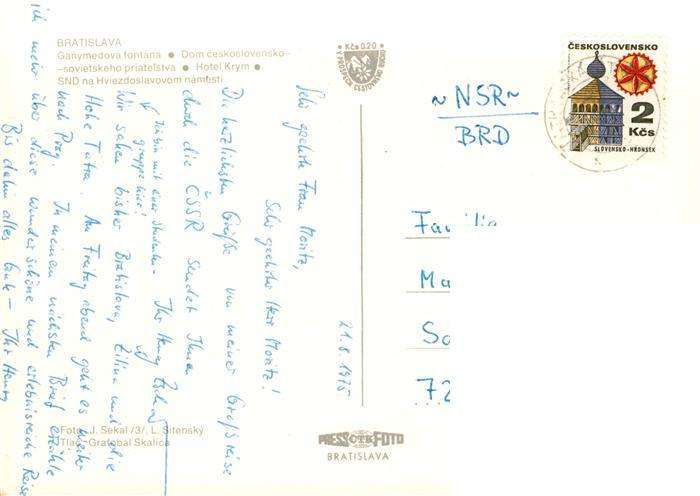 BRATISLAVA
Ganymedova fontána ● Dom československo-
-sovietskeho priateľstva ● Hotel Krym ●
SND na Hviezdoslavovom námestí
Kčs 0,20
ČESKOSLOVENSKO
2
Kčs
SLOVENSKO-HRONSEK
~NSR~
BRD
Familie
Ma
So
72
21.8.1975
Sehr geehrte Frau Moritz,
Sehr geehrter Herr Moritz!
Die herzlichsten Grüße von meiner Großreise
durch die ČSSR sendet Ihnen
Ihr Henry
Ich bin mit einer Studenten-
gruppe hier!
Wir sahen bisher Bratislava, Žilina und die
Hohe Tatra. Am Freitag abend geht es weiter
nach Prag. In meinem nächsten Brief erzähle
ich mehr über diese wunderschöne und erlebnisreiche Reise
Bis dahin alles Gute - Ihr Henry
Foto: J. Sekal /3/, L. Sitenský
Tlač: Grafobal Skalica
PRESS ČTK FOTO
BRATISLAVA